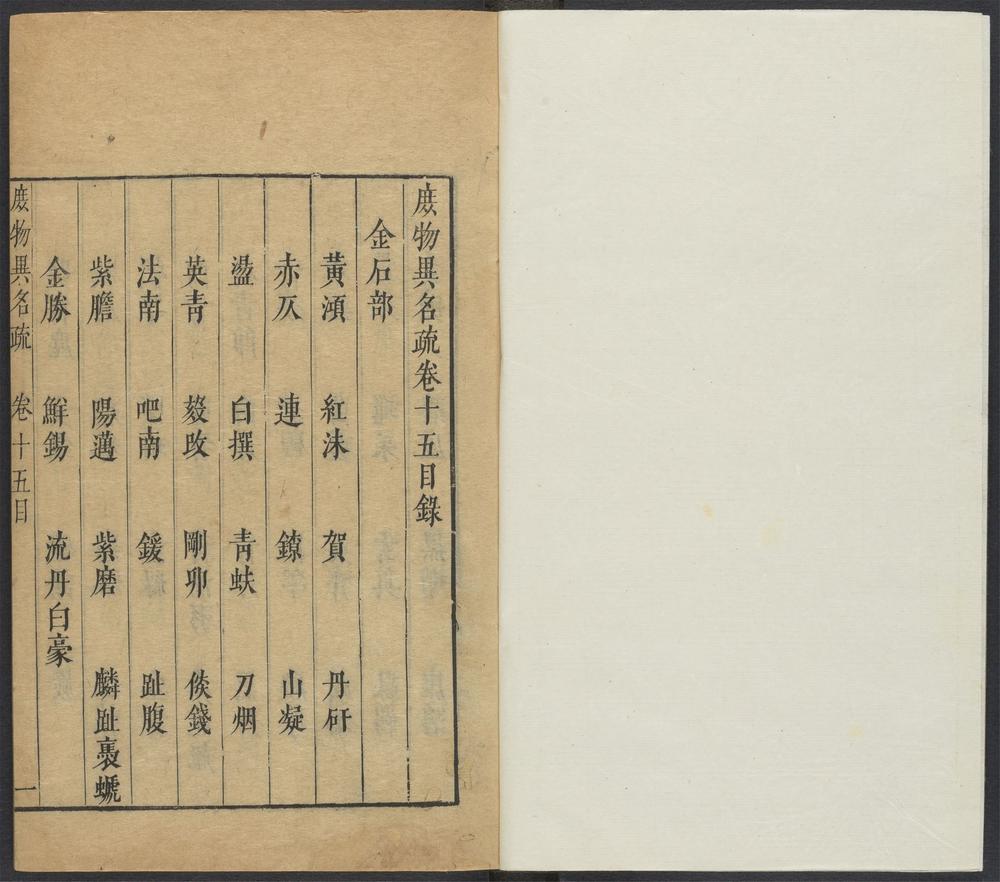 庻物異名疏卷十五目錄
金石部
黃澒 紅沬 賀 丹矸
赤仄 連 鐐 山凝
盪 白撰 青蚨 刀烟
英青 㱾攺 剛卯 倓錢
法南 吧南 鍰 趾腹
紫膽 陽邁 紫磨 麟趾褭蹏
金勝 鮮錫 流丹白豪
庻物異名疏 卷十五目 一